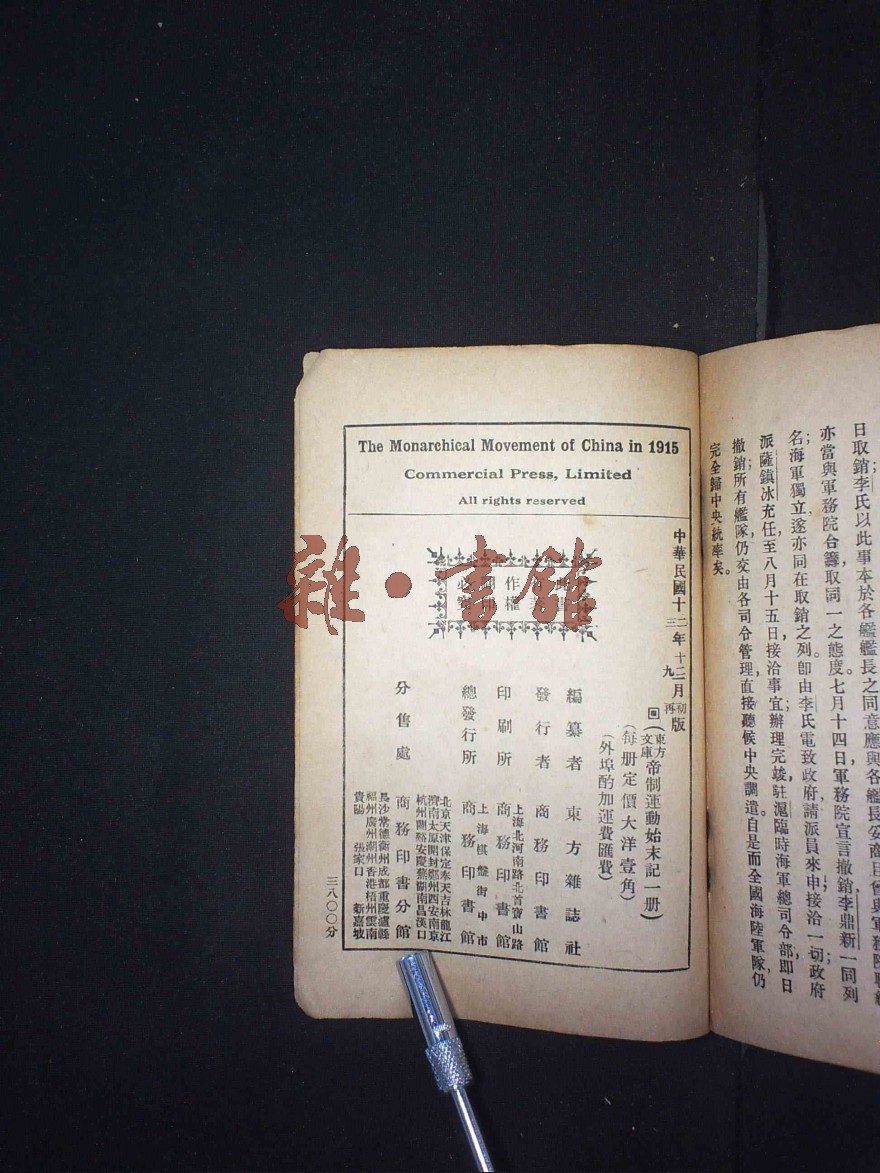 日取銷李氏以此事本於各艦艦長之同意應與各艦長妥商且曾與軍務院
亦當與軍務院合籌取同一之態度七月十四日軍務院宣言撤銷李鼎新一同列
名;海軍獨立遂亦同在取銷之列。卽由李氏電致政府,請派員來申接洽一切;政府
派薩鎮冰充任至八月十五日接洽事宜辦理完竣;駐滬臨時海軍總司令部卽日
撤銷;所有艦隊仍交由各司令管理,直接聽候中央調遣。自是而全國海陸軍隊仍
完全歸中央統率矣。
The Monarchical Movement of China in 1915
Commercial Press, Limited
All rights reserved
中華民國十二年十二月初版
三 九 再
回(東方文庫)帝制運動始末記一册)
(每册定價大洋壹角)
(外埠酌加運費匯費)
作權
必究
編纂者 東方雜誌社
發行者 商務印書館
印刷所 上海北河南路北首寶山路 商務印書館
總發行所 上海棋盤街中市 商務印書館
分售處 商務印書分館
北京天津保定奉天吉林龍江
濟南太原開封鄭州西安南京
杭州蘭谿安慶蕪湖南昌漢口
長沙常德衡州成都重慶瀘縣
福州廣州潮州香港梧州雲南
貴陽 張家口 新嘉坡
三八〇〇分
雜·書館